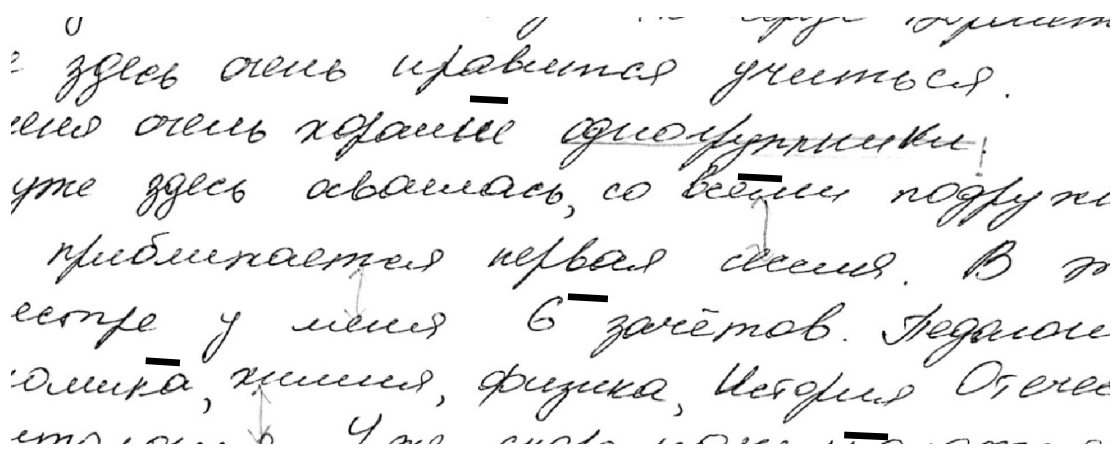 здесь очень нравится учиться.
еня очень хорошие одногруппники!
уже здесь освоилась, со всеми подружи
приближается первая сессия. В э
естре у меня 6 зачётов. Педагоги
омика, химия, физика, История Отечес
Уже скоро